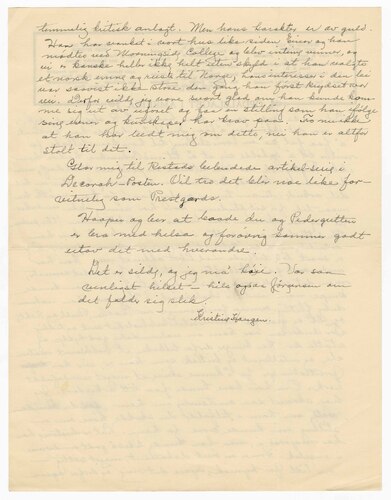 temmelig kritisk anlagt. Men hans karakter er av guld.
Han har vanket i vort hus like siden Einer og han
møttes ved Morningside College og blev intime venner, og
en er kanske heller ikke helt uten skyld i at han valgte
et norsk emne og reiste til Norge, hans interesser i den lei
var saavist ikke store den gang han først krydset vor
vei. Derfor vilde jeg være svært glad om han kunde kom-
me sig ut av uføret og faa en stilling som han ifølge
sine evner og kundskaper har krav paa. Tro nu ikke
at han har bedt mig om dette, nei han er altfor
stolt til det.
Glær mig til Restads bebudede artikel-serie i
Decorah-Posten. Vil tro det blir noe like for-
vitnelig som Prestgards.
Haaper og ber at baade du og Pedergutten
er bra med helsa og forøvrig kommer godt
utav det med hverandre.
Det er sildig, og jeg må køie. Vær saa
venligst hilset — hils ogsaa Jørgensen om
det falder sig slik.
Kristine Haugen.